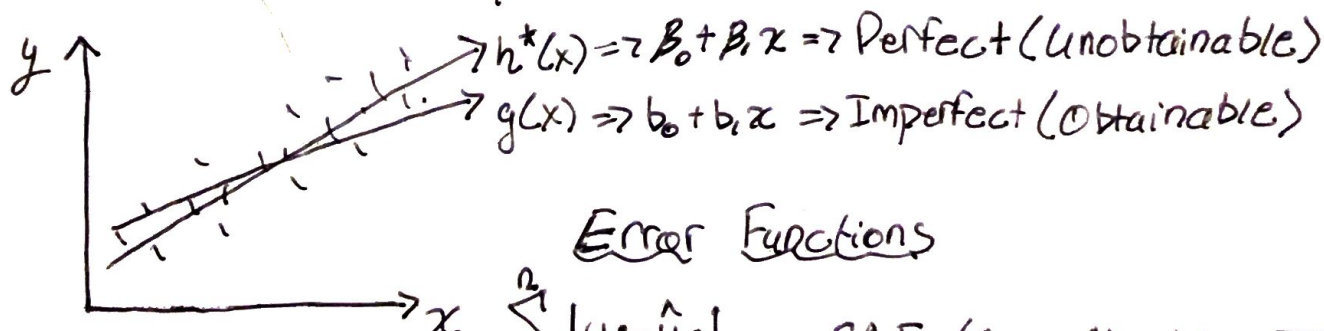 y
h*(x) => β₀+β₁x => Perfect (Unobtainable)
g(x) => b₀+b₁x => Imperfect (Obtainable)
Error Functions
x
n